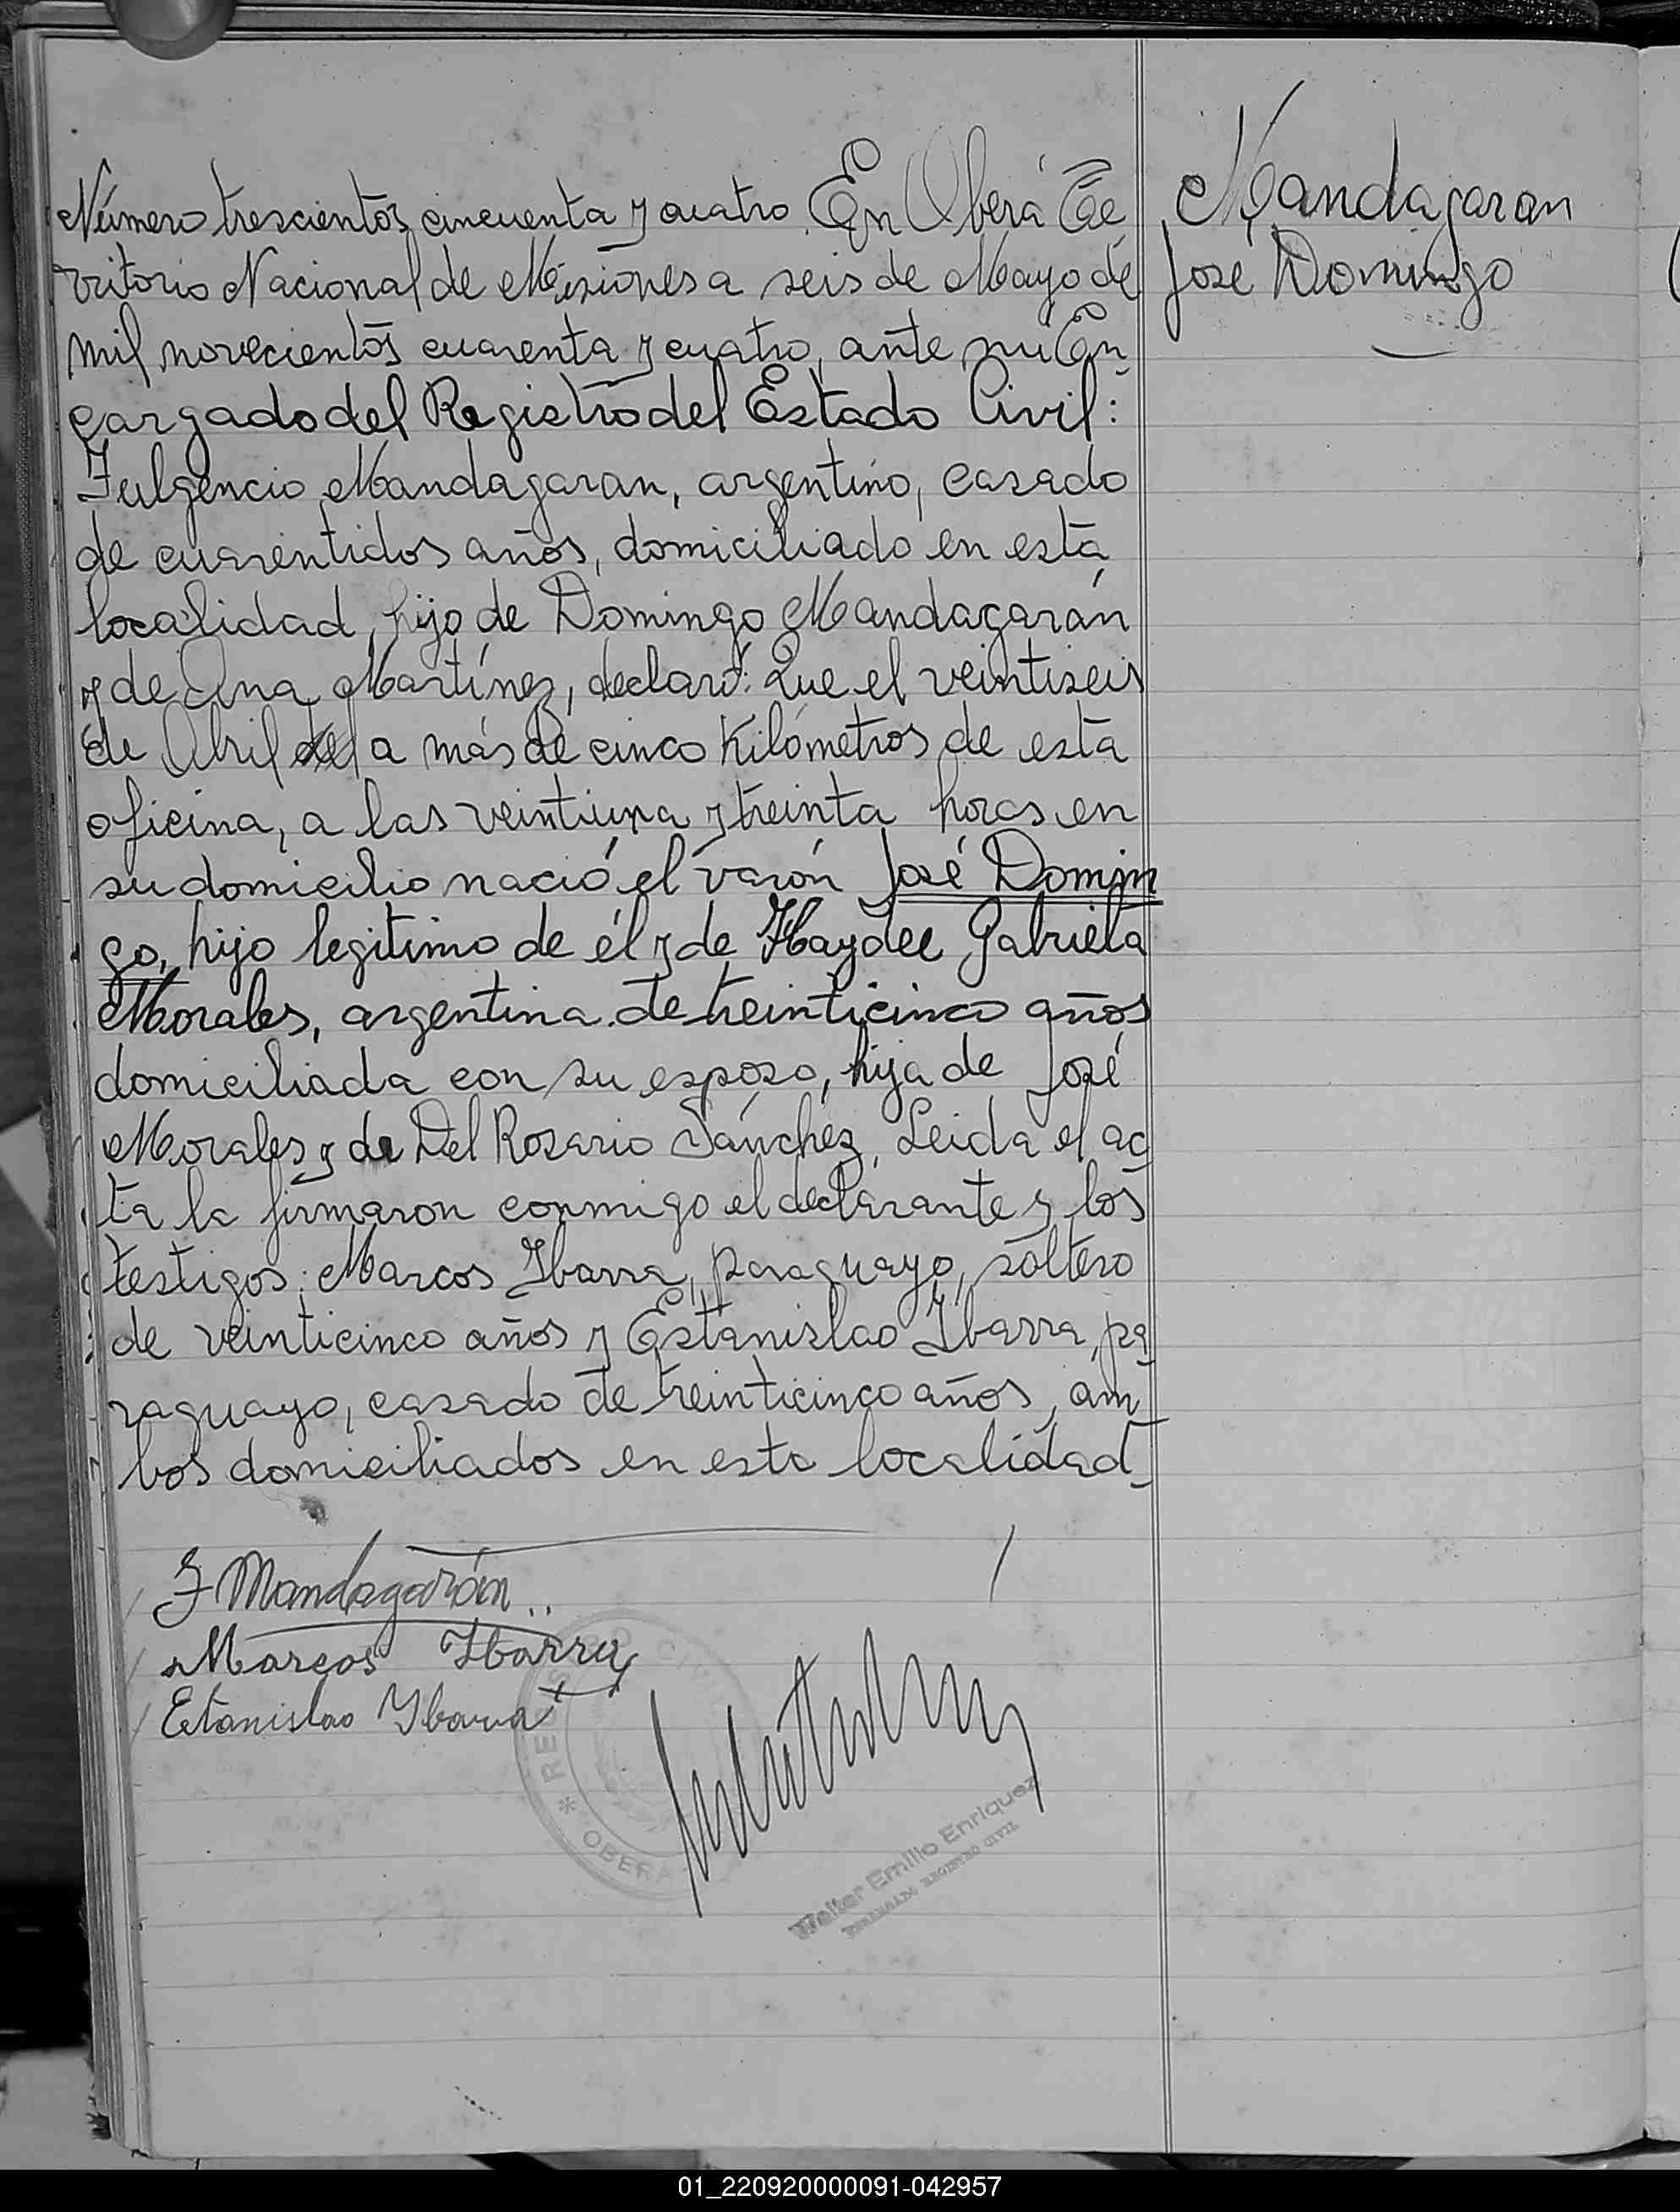 Número trescientos cincuenta y cuatro. En Oberá Te
rritorio Nacional de Misiones a seis de Mayo de
mil novecientos cuarenta y cuatro, ante mi En
cargado del Registro del Estado Civil:
Fulgencio Mandagaran, argentino, casado
de cuarentidos años, domiciliado en esta
localidad, hijo de Domingo Mandagarán
y de Ana Martínez, declaró: Que el veintiseis
de Abril a más de cinco Kilómetros de esta
oficina, a las veintiuna y treinta horas en
su domicilio nació el varón José Domin
go, hijo legitimo de él y de Haydee Gabriela
Morales, argentina de treinticinco años
domiciliada con su esposo, hija de José
Morales y de Del Rosario Sánchez, Leida el ac
ta la firmaron conmigo el declarante y los
testigos: Marcos Ibarra, paraguayo, soltero
de veinticinco años y Estanislao Ibarra, pa
raguayo, casado de treinticinco años, am
bos domiciliados en esta localidad
Mandagaran
José Domingo
F Mandagarán
Marcos Ibarra
Estanislao Ybarra
REGISTRO CIVIL
* OBERA
Walter Emilio Enriquez
ENCARGADO REGISTRO CIVIL
01_220920000091-042957